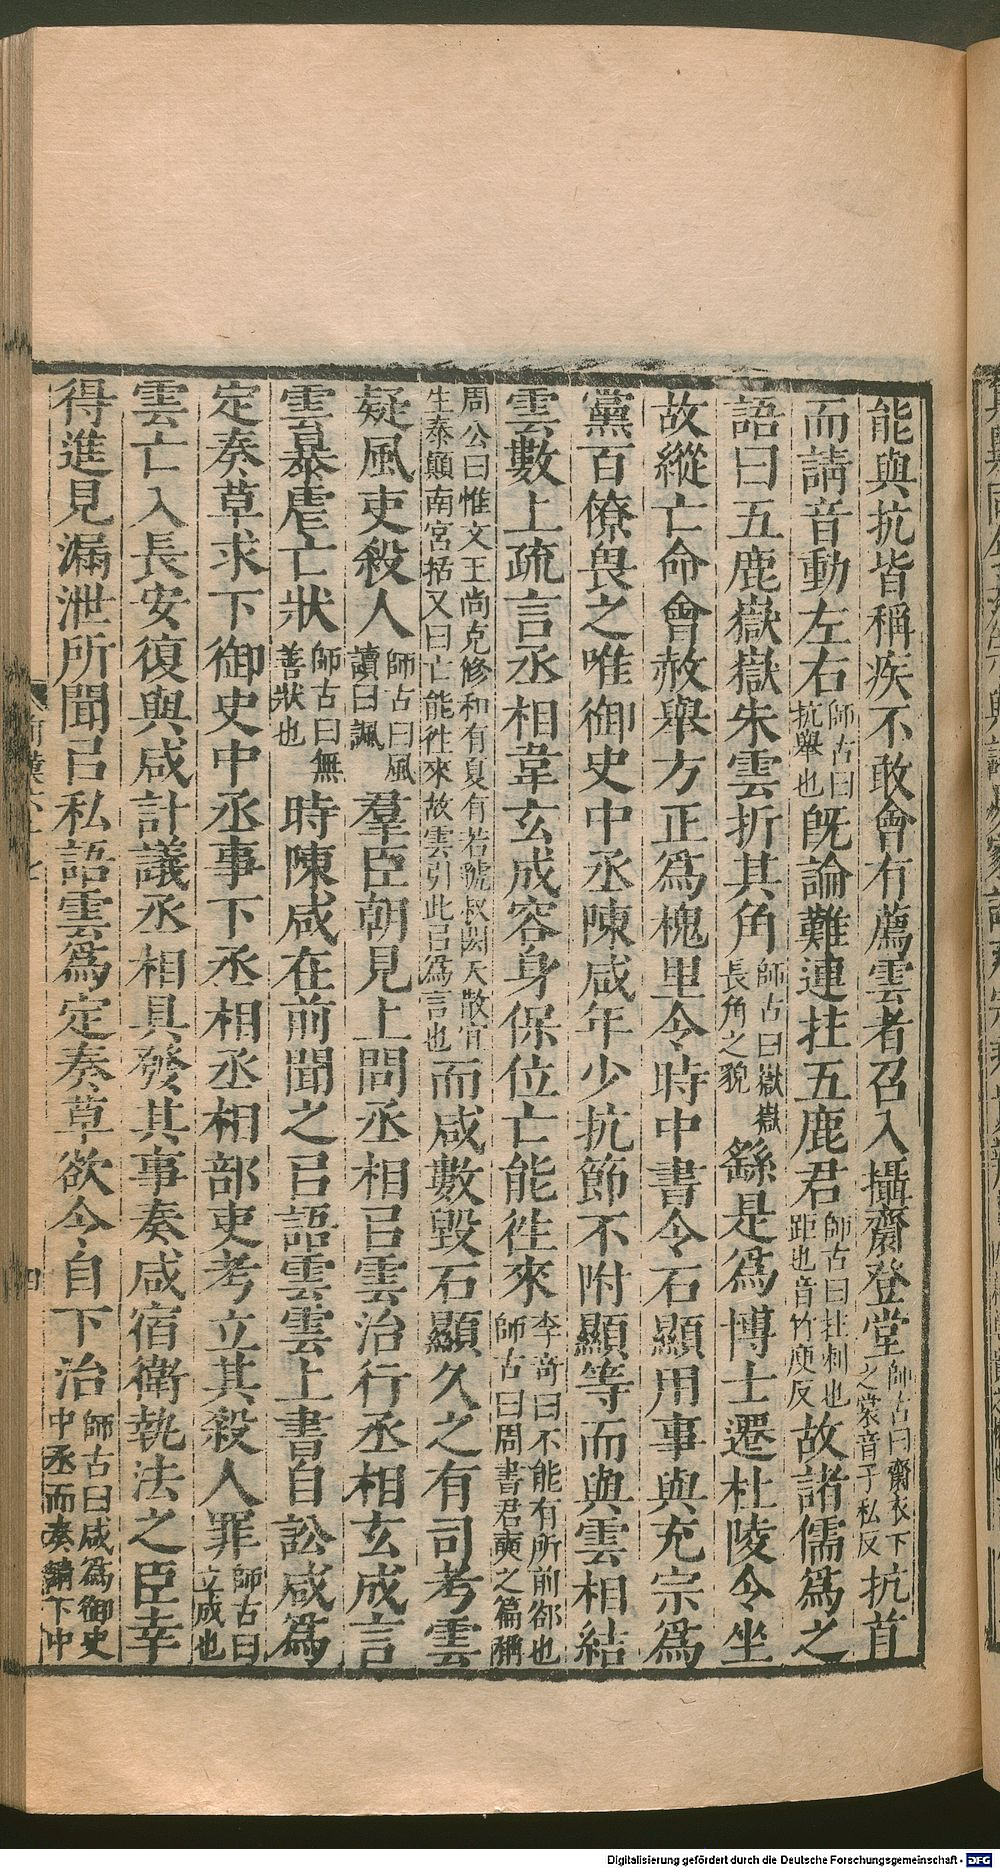 能與抗皆稱疾不敢會有薦雲者召入攝齋登堂師古曰齋衣下之裳音子私反抗首
而請音動左右師古曰抗舉也旣論難連拄五鹿君師古曰拄刺也距也音竹庾反故諸儒爲之
語曰五鹿嶽嶽朱雲折其角師古曰嶽嶽長角之貌繇是爲博士遷杜陵令坐
故縱亡命會赦舉方正爲槐里令時中書令石顯用事與充宗爲
黨百僚畏之唯御史中丞陳咸年少抗節不附顯等而與雲相結
雲數上疏言丞相韋玄成容身保位亡能徃來李奇曰不能有所前卻也師古曰周書君奭之篇稱
周公曰惟文王尚克修和有夏有若虢叔閎夭散宜生泰顚南宮括又曰亡能徃來故雲引此㠯爲言也而咸數毀石顯久之有司考雲
疑風吏殺人師古曰風讀曰諷羣臣朝見上問丞相㠯雲治行丞相玄成言
雲暴虐亡狀師古曰無善狀也時陳咸在前聞之㠯語雲雲上書自訟咸爲
定奏草求下御史中丞事下丞相丞相部吏考立其殺人罪師古曰立成也
雲亡入長安復與咸計議丞相具發其事奏咸宿衛執法之臣幸
得進見漏泄所聞㠯私語雲爲定奏草欲令自下治師古曰咸爲御史中丞而奏請下中
Digitalisierung gefördert durch die Deutsche Forschungsgemeinschaft - DFG